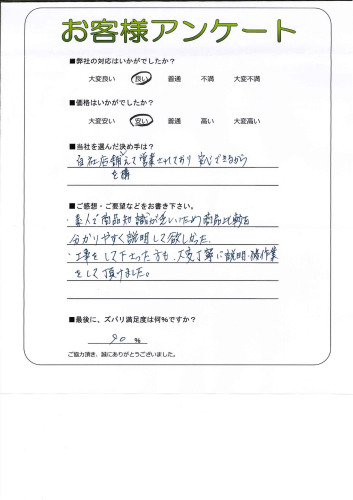 お客様アンケート
■弊社の対応はいかがでしたか?
大変良い 良い 普通 不満 大変不満
■価格はいかがでしたか?
大変安い 安い 普通 高い 大変高い
■当社を選んだ決め手は?
自社店舗 て営業されており 安心できるから
を構
■ご感想・ご要望などをお書き下さい。
・素人で商品知識が乏しいため商品比較を
分かりやすく説明して欲しかった。
・工事をして下さった方も、大変丁寧に説明・ 作業
をして頂けました。
■最後に、ズバリ満足度は何%ですか?
90 %
ご協力頂き、誠にありがとうございました。